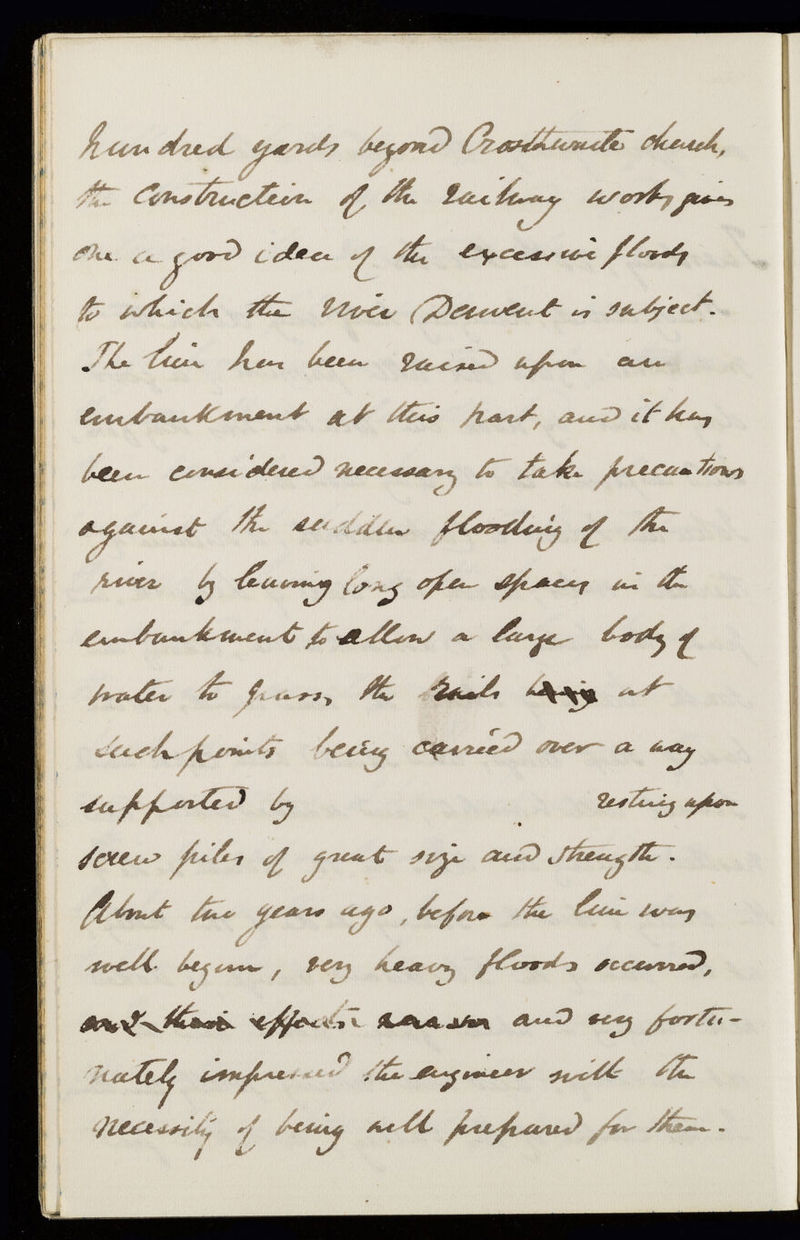 hundred yards beyond Crosthwaite church,
the construction of the railway works gives
one a good idea of the excessive floods
to which the river Derwent is subject.
The line has been raised upon an
embankment at this part, and it has
been considered necessary to take precautions
against the sudden flooding of the
river by leaving long open spaces in the
embankment to allow a large body of
water to pass, the rails being at
such points being carried over a way
supported by resting upon
screw piles of great size and strength.
About two years ago, before the line was
well begun, very heavy floods occurred,
and their effects and very fortu-
nately impressed the engineer with the
necessity of being well prepared for them.